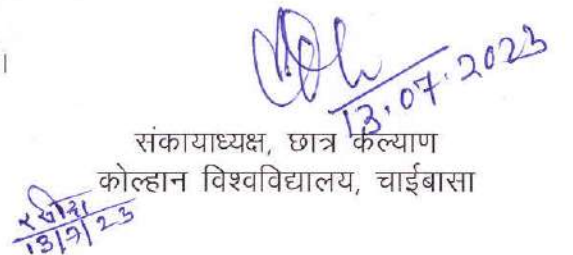 13.07.2023
संकायाध्यक्ष, छात्र कल्याण
कोल्हान विश्वविद्यालय, चाईबासा
13/7/23